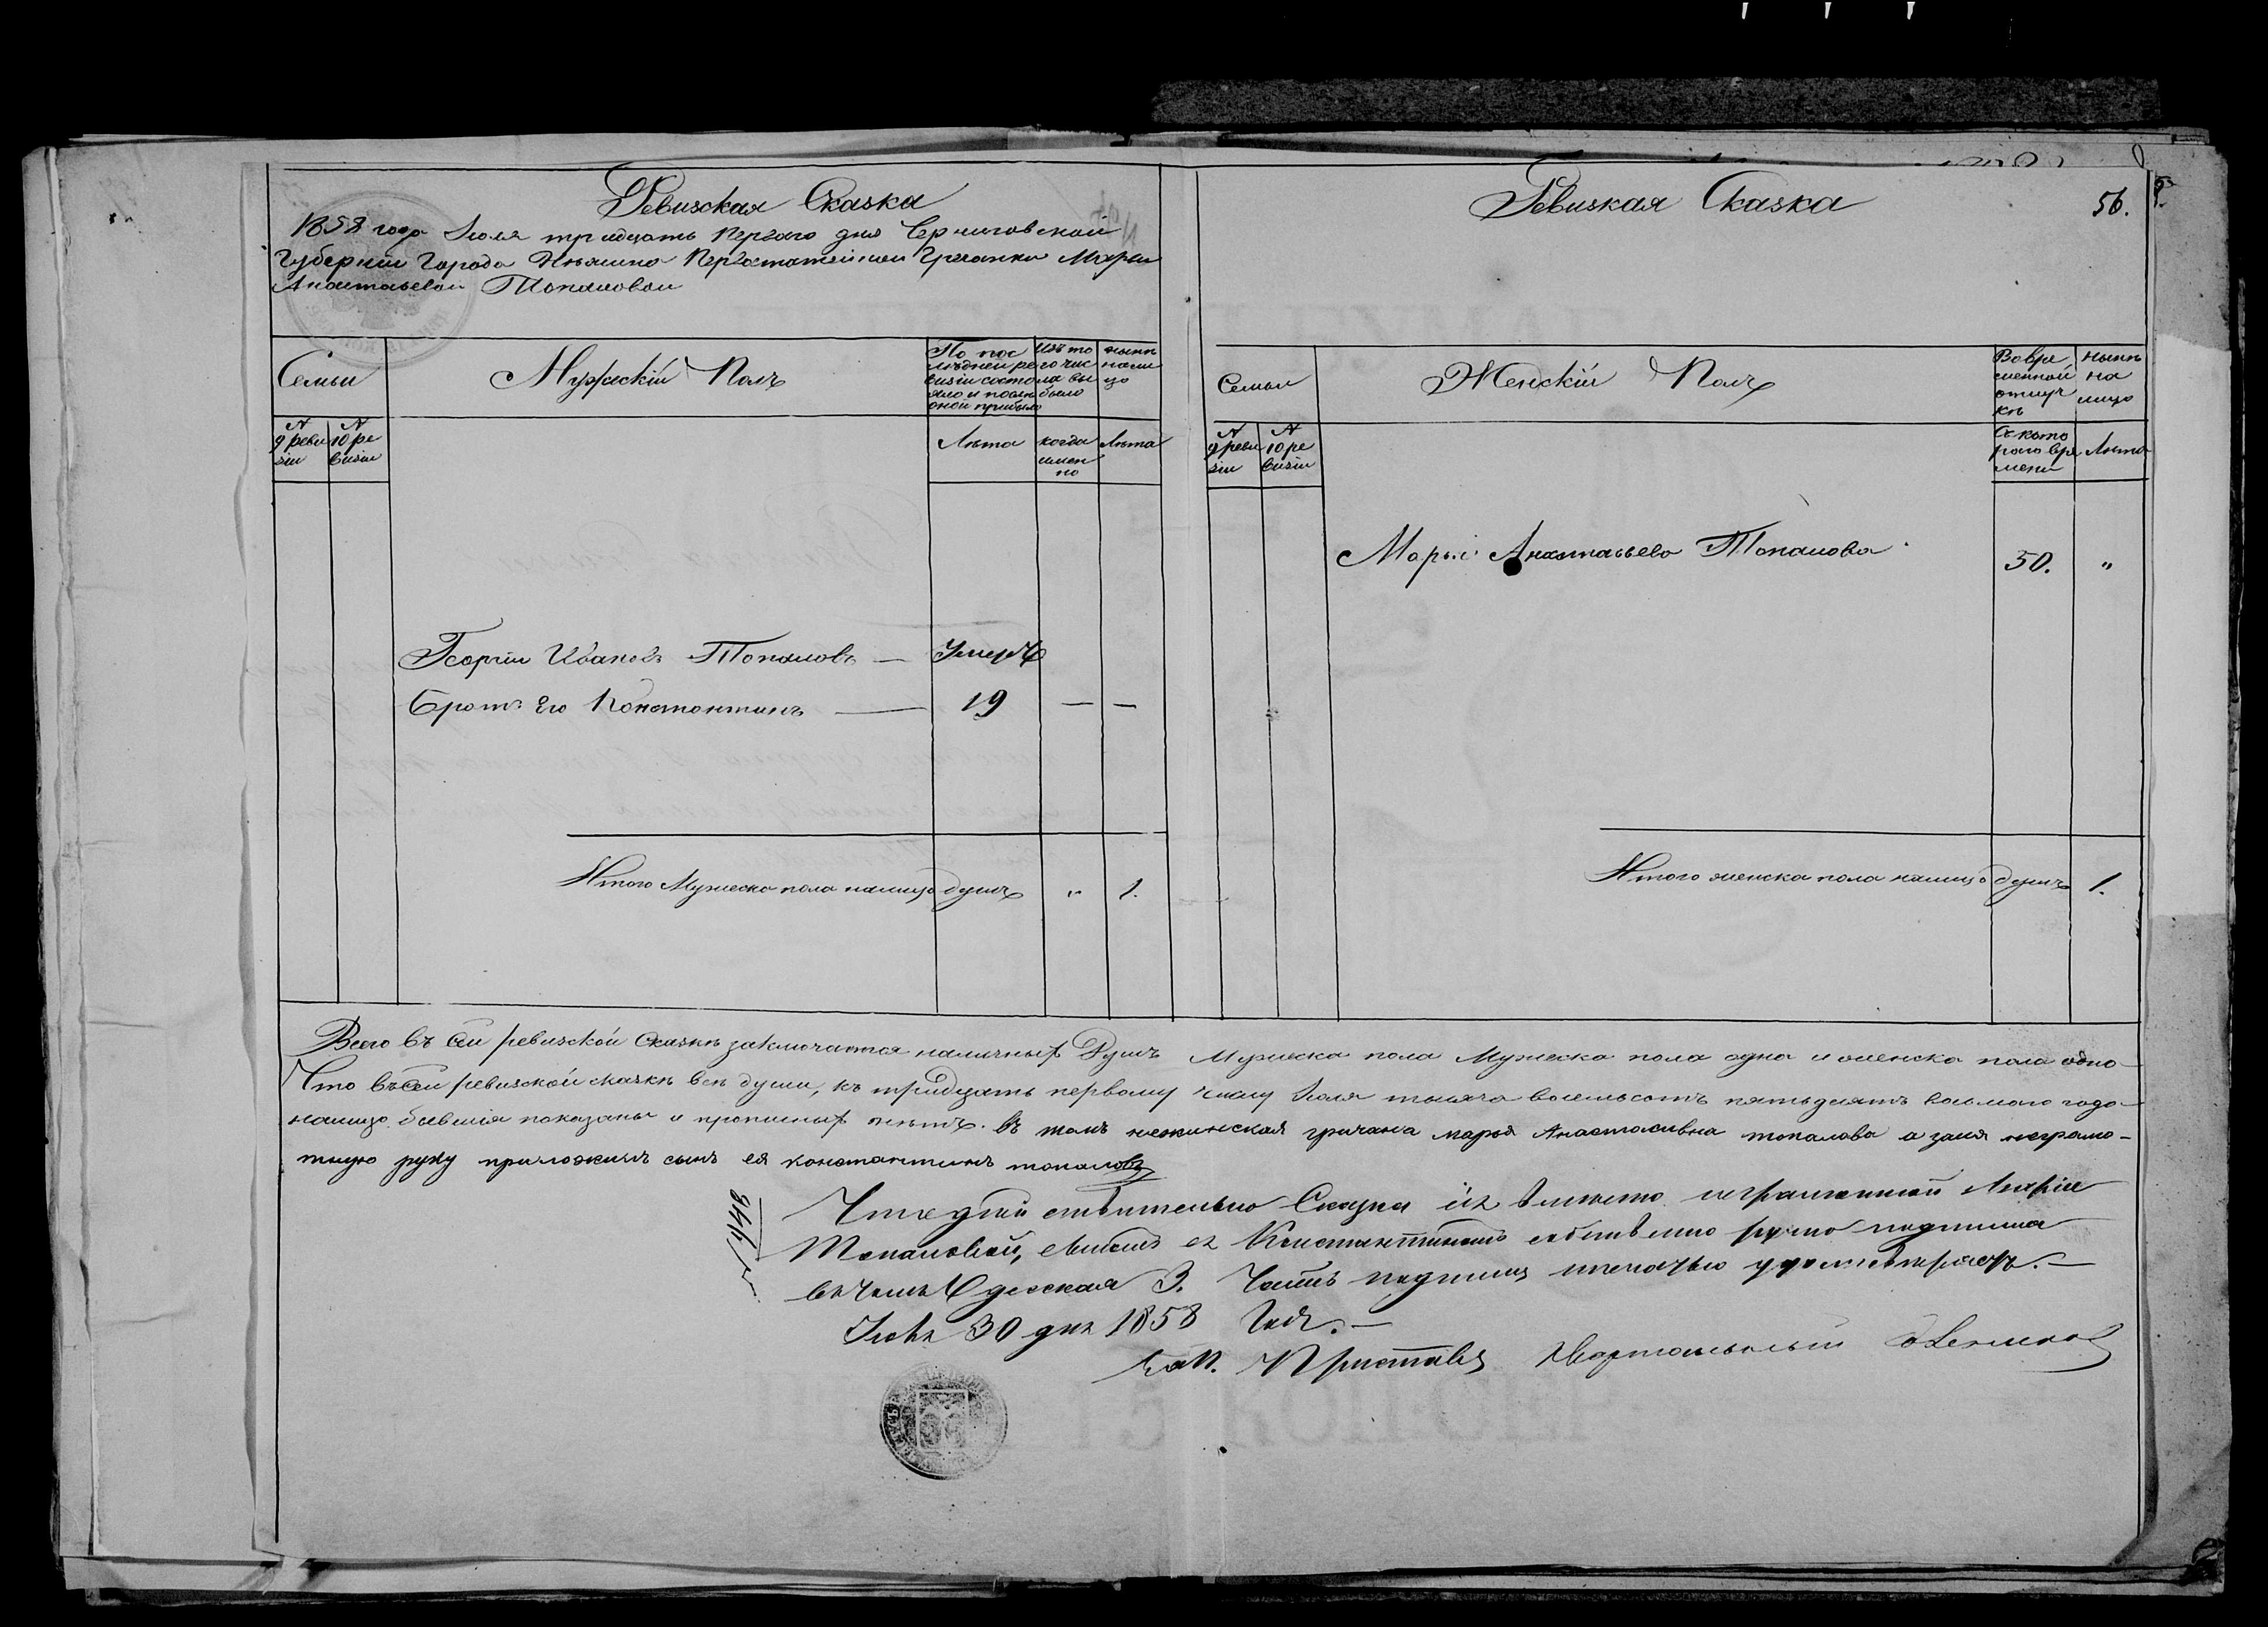 Ревизская Сказка
1858 года Июля тридцать первого дня Черниговской
Губернии Города Нѣжина Первостатейной Гречанки Марьи
Анастасьевой Топаловой
Семьи
Мужескій Полъ
По пос
лѣдней ре
визіи состо
яло и послѣ
оной прибыло
Изъ то
го чис
ла вы
было
нынѣ
нали
цо
N
9 реви
зіи
N
10 ре
визіи
Лѣта
когда
имен
но
Лѣта
Георгіи Ивановъ Топаловъ — Умеръ
Братъ Его Константинъ — 19 — —
Итого Мужеска пола налицо душъ " 1.
Ревизкая Сказка
56.
Семьи
Женскій Полъ
Во вре
менной
отлуч
кѣ
нынѣ
на
лицо
N
9 реви
зіи
N
10 ре
визіи
Съ кото
рого вре
мени
Лѣта
Марьи Анастасьева Топалова 50. "
Итого женска пола налицо душъ 1.
Всего въ сеи ревизской Сказкѣ заключается наличныхъ Душъ Мужеска пола Мужеска пола одна и женска пола одно
Что въ сеи ревизской сказкѣ всѣ души, къ тридцать первому числу Іюля тысяча восемьсотъ пятьдесятъ восьмого года
налицо бывшія показаны и прописныхъ нѣтъ. въ томъ нежинская гречана марья Анастасивна топалова а заия неграмо-
тную руку приложилъ сынъ ея константинъ топаловъ
Что действительно Сказка сия вместо неграмотной Маріи
Топаловой, сыномъ ея Константиномъ собственно ручно подписа
въ чемъ Одесская 3. Часть подписом и печатью удостоверяетъ.—
Июля 30 дня 1858 Года.—
Приставъ Квартальный